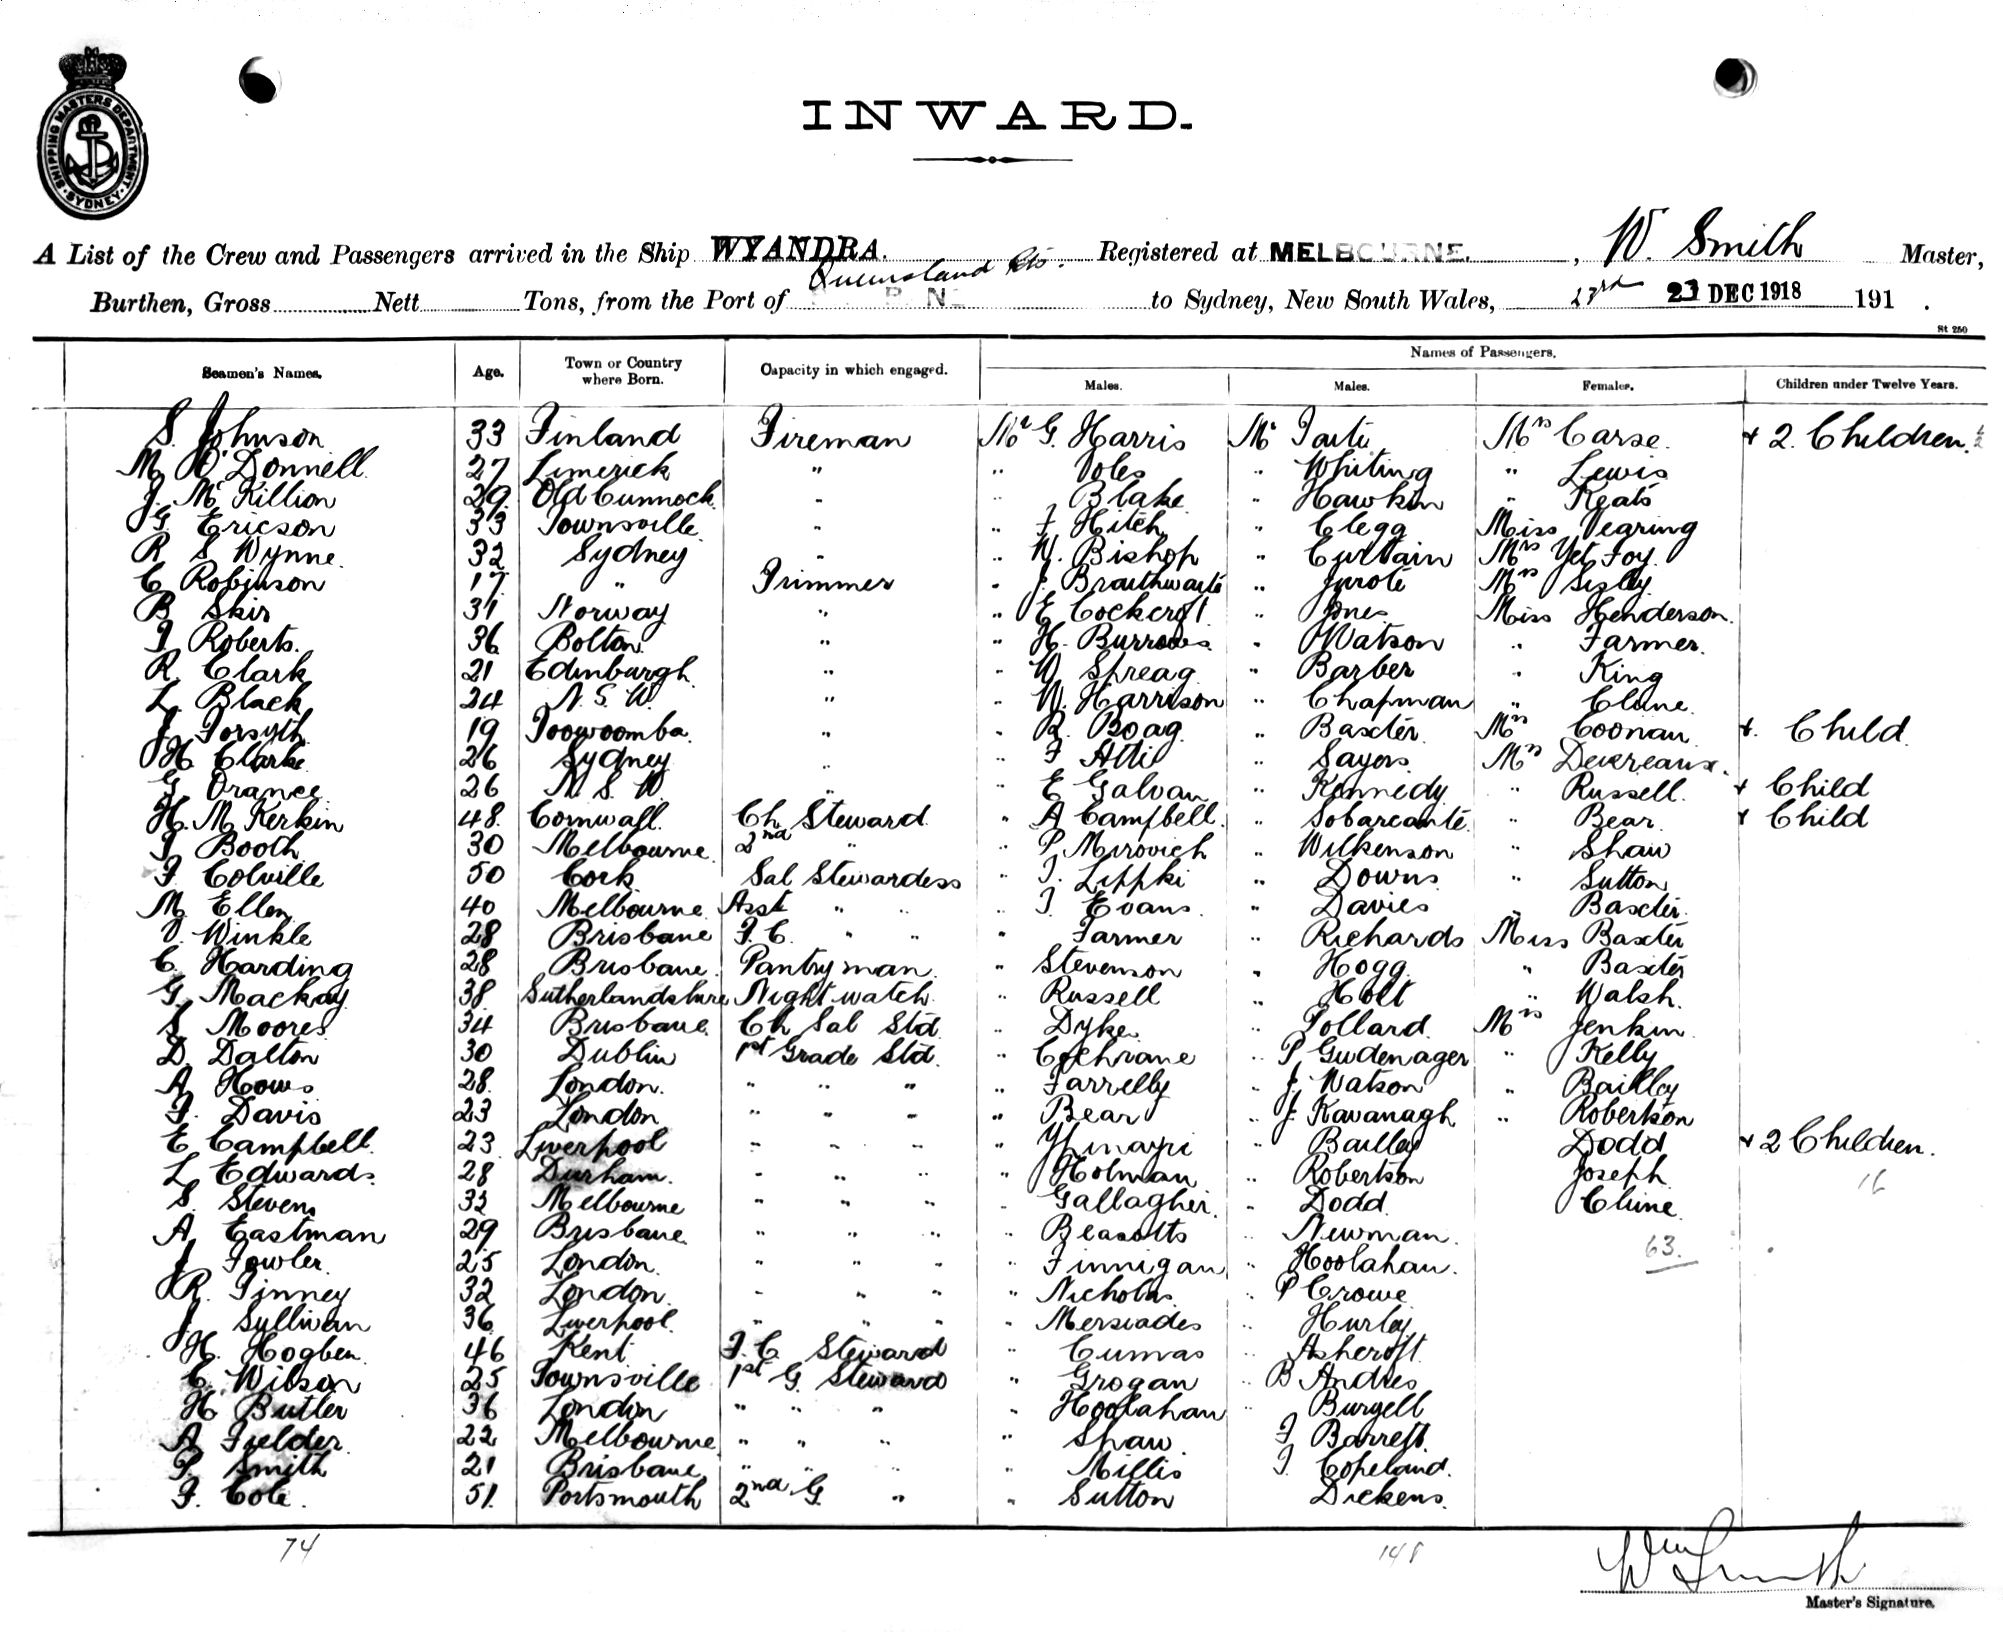 SHIPPING MASTERS DEPARTMENT SYDNEY
INWARD.
A List of the Crew and Passengers arrived in the Ship WYANDRA. Registered at MELBOURNE. , W. Smith Master,
Burthen, Gross Nett Tons, from the Port of Queensland Pts. to Sydney, New South Wales, 23rd 23 DEC 1918 191 .
St 250
Seamen's Names. Age. Town or Country where Born. Capacity in which engaged. Names of Passengers.
Males. Males. Females. Children under Twelve Years.
S. Johnson 33 Finland Fireman Mr G. Harris Mr Taite Mrs Carse. + 2. Children.
M. O'Donnell. 27 Limerick " " Voles " Whiting " Lewis
J. Mc Killion 29. Old Cunnock " " Blake " Hawkin " Keats
G. Ericson 33 Townsville " " F. Hitch " Clegg Miss Vearing
R. S. Wynne. 32 Sydney " " W. Bishop " Curtain Mrs Yet Foy.
C Robinson 17 " Trimmer " J. Braithwaite " Mrs Sisley
B Skis 31 Norway " " E Cockcroft " Jones Miss Henderson.
T Roberts. 36 Bolton " " H. Burrows " Watson " Farmer.
R. Clark 21 Edinburgh " " W Spreag " Barber " King
L. Black 24 N. S. W. " " W. Harrison " Chapman " Clune.
J. Forsyth 19 Toowoomba " " R. Boag " Baxter Mrs Coonan +. Child.
H Clarke 26 Sydney " " F Atti " Sayers Mrs Devreaux.
G. Orance 26 N. S. W. " " E Galvan " Kennedy " Russell. + Child
H. Mc Kerkin 48. Cornwall. Ch Steward " A Campbell. " Sobarcante. " Bear. + Child
J. Booth 30 Melbourne 2nd " " P. Mirovich " Wilkenson " Shaw
F. Colville 50 Cork Sal Stewardess " J. Lippki " Downs " Sutton
M. Ellen 40 Melbourne. Asst " " " J. Evans. " Davies " Baxter.
V. Winkle 28 Brisbane F. C. " " " Farmer " Richards Miss Baxter
C. Harding 28 Brisbane. Pantryman. " Stevenson " Hogg. " Baxter
G. Mackay 38. Sutherlandshire Night watch. " Russell " Holt " Walsh.
S. Moores 34 Brisbane. Ch Sal Std " Dyke " Pollard. Mrs Jenkin.
D. Dalton 30 Dublin 1st Grade Std. " Cochrane " P. Gudenager " Kelly
A. Hows 28. London. " " " " Farrelly " J. Watson " Bailley
F. Davis 23 London " " " " Bear " J. Kavanagh " Robertson
E Campbell. 23 Liverpool " " " " " Bailley Dodd + 2 Children.
L. Edwards. 28 Durham. " " " " Holman " Robertson Joseph. 16
S. Stevens 32 Melbourne " " " " Gallagher. " Dodd. Clune.
A. Eastman 29 Brisbane " " " " Beasotts " Newman.
J. Fowler. 25 London. " " " " Finnigan " Hoolahan. 63.
R. Finney 32 London. " " " " Nicholas " P Crowe
J. Sullivan 36 Liverpool. " " " " Mersiades " Hurley
H. Hogben. 46 Kent F. C Steward " Cumas " Ashcroft.
C. Wilson 25 Townsville 1st G. Steward " Grogan " B Andres
H. Butler 36 London " " " " Hoolahan " Burgell
A. Fielder. 22 Melbourne " " " " Shaw. F Barrett.
P. Smith 21 Brisbane " " " " Millis J. Copeland.
F. Cole. 51. Portsmouth 2nd G. " " Sutton Dickens.
74 148
Wm Smith
Master's Signature.